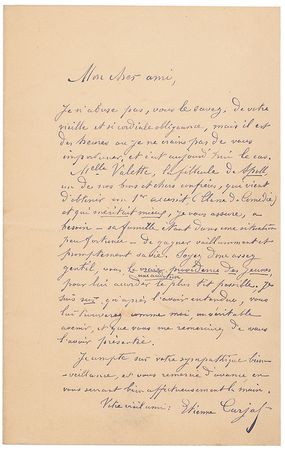 Mon cher ami,
Je n'abuse pas, vous le savez, de votre
vieille et si cordiale obligeance, mais il est
des heures où je ne crains pas de vous
importuner, et c'est aujourd'hui le cas.
Melle Valette, la filleule de
un de nos bons et chers confrères, qui vient
d'obtenir un 1er accessit (Élève de Comédie)
et qui méritait mieux, je vous assure, a
besoin – sa famille étant dans une situation
peu fortunée – de gagner vaillamment et
promptement sa vie. Soyez donc assez
gentil, vous la vraie providence des jeunes
pour lui accorder le plus tôt possible. Je
suis sûr qu'après l'avoir entendue, vous
lui trouverez comme moi, un véritable
avenir, et que vous me remercierez de vous
l'avoir présentée.
Je compte sur votre sympathique bien-
veillance, et vous remercie d'avance en
vous serrant bien affectueusement la main.
Votre vieil ami: Etienne Carjat